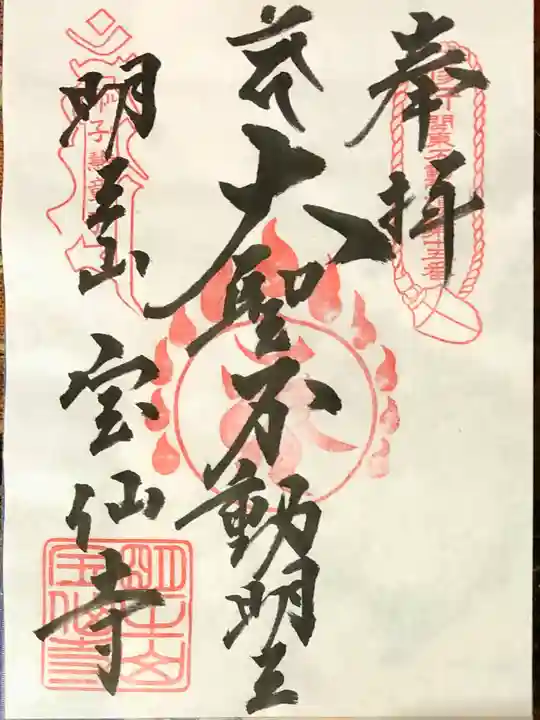 奉拝
大聖不動明王
明王山 宝仙寺
明王山
宝仙寺